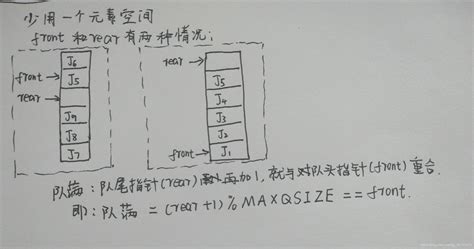 少用一个元素空间
front 和 rear 有两种情况:
J6
front→ J5
rear→
J9
J8
J7
rear→
J5
J4
J3
J2
front→ J1
队满:队尾指针(rear) 再加1,就与对队头指针(front)重合.
即:队满 = (rear+1)%MAXQSIZE == front.